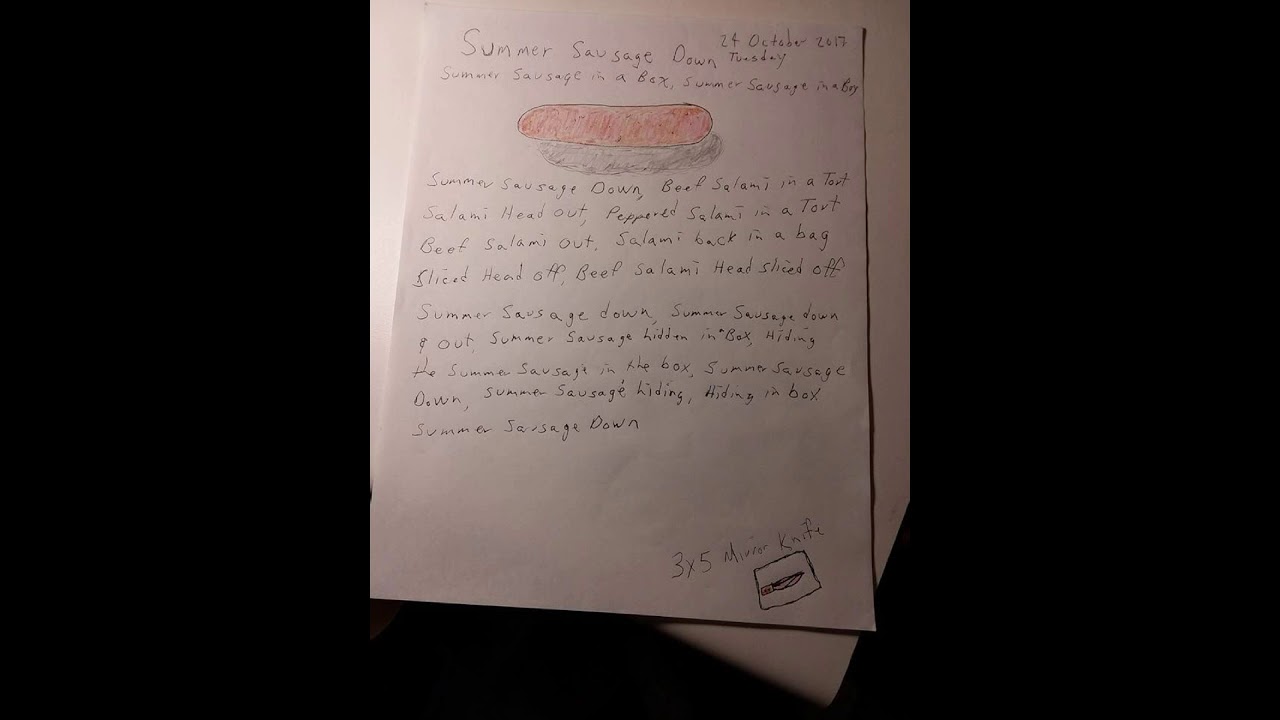 Summer Sausage Down 24 October 2017
Tuesday
Summer Sausage in a Box, Summer Sausage in a Box
Summer Sausage Down, Beef Salami in a Tort
Salami Head out, Peppered Salami in a Tort
Beef Salami out, Salami back in a bag
Sliced Head off, Beef Salami Head sliced off
Summer Sausage down, Summer Sausage down
& out, Summer Sausage hidden in a Box, Hiding
the Summer Sausage in the box, Summer Sausage
Down, Summer Sausage hiding, Hiding in box
Summer Sausage Down
3x5 Mirror Knife